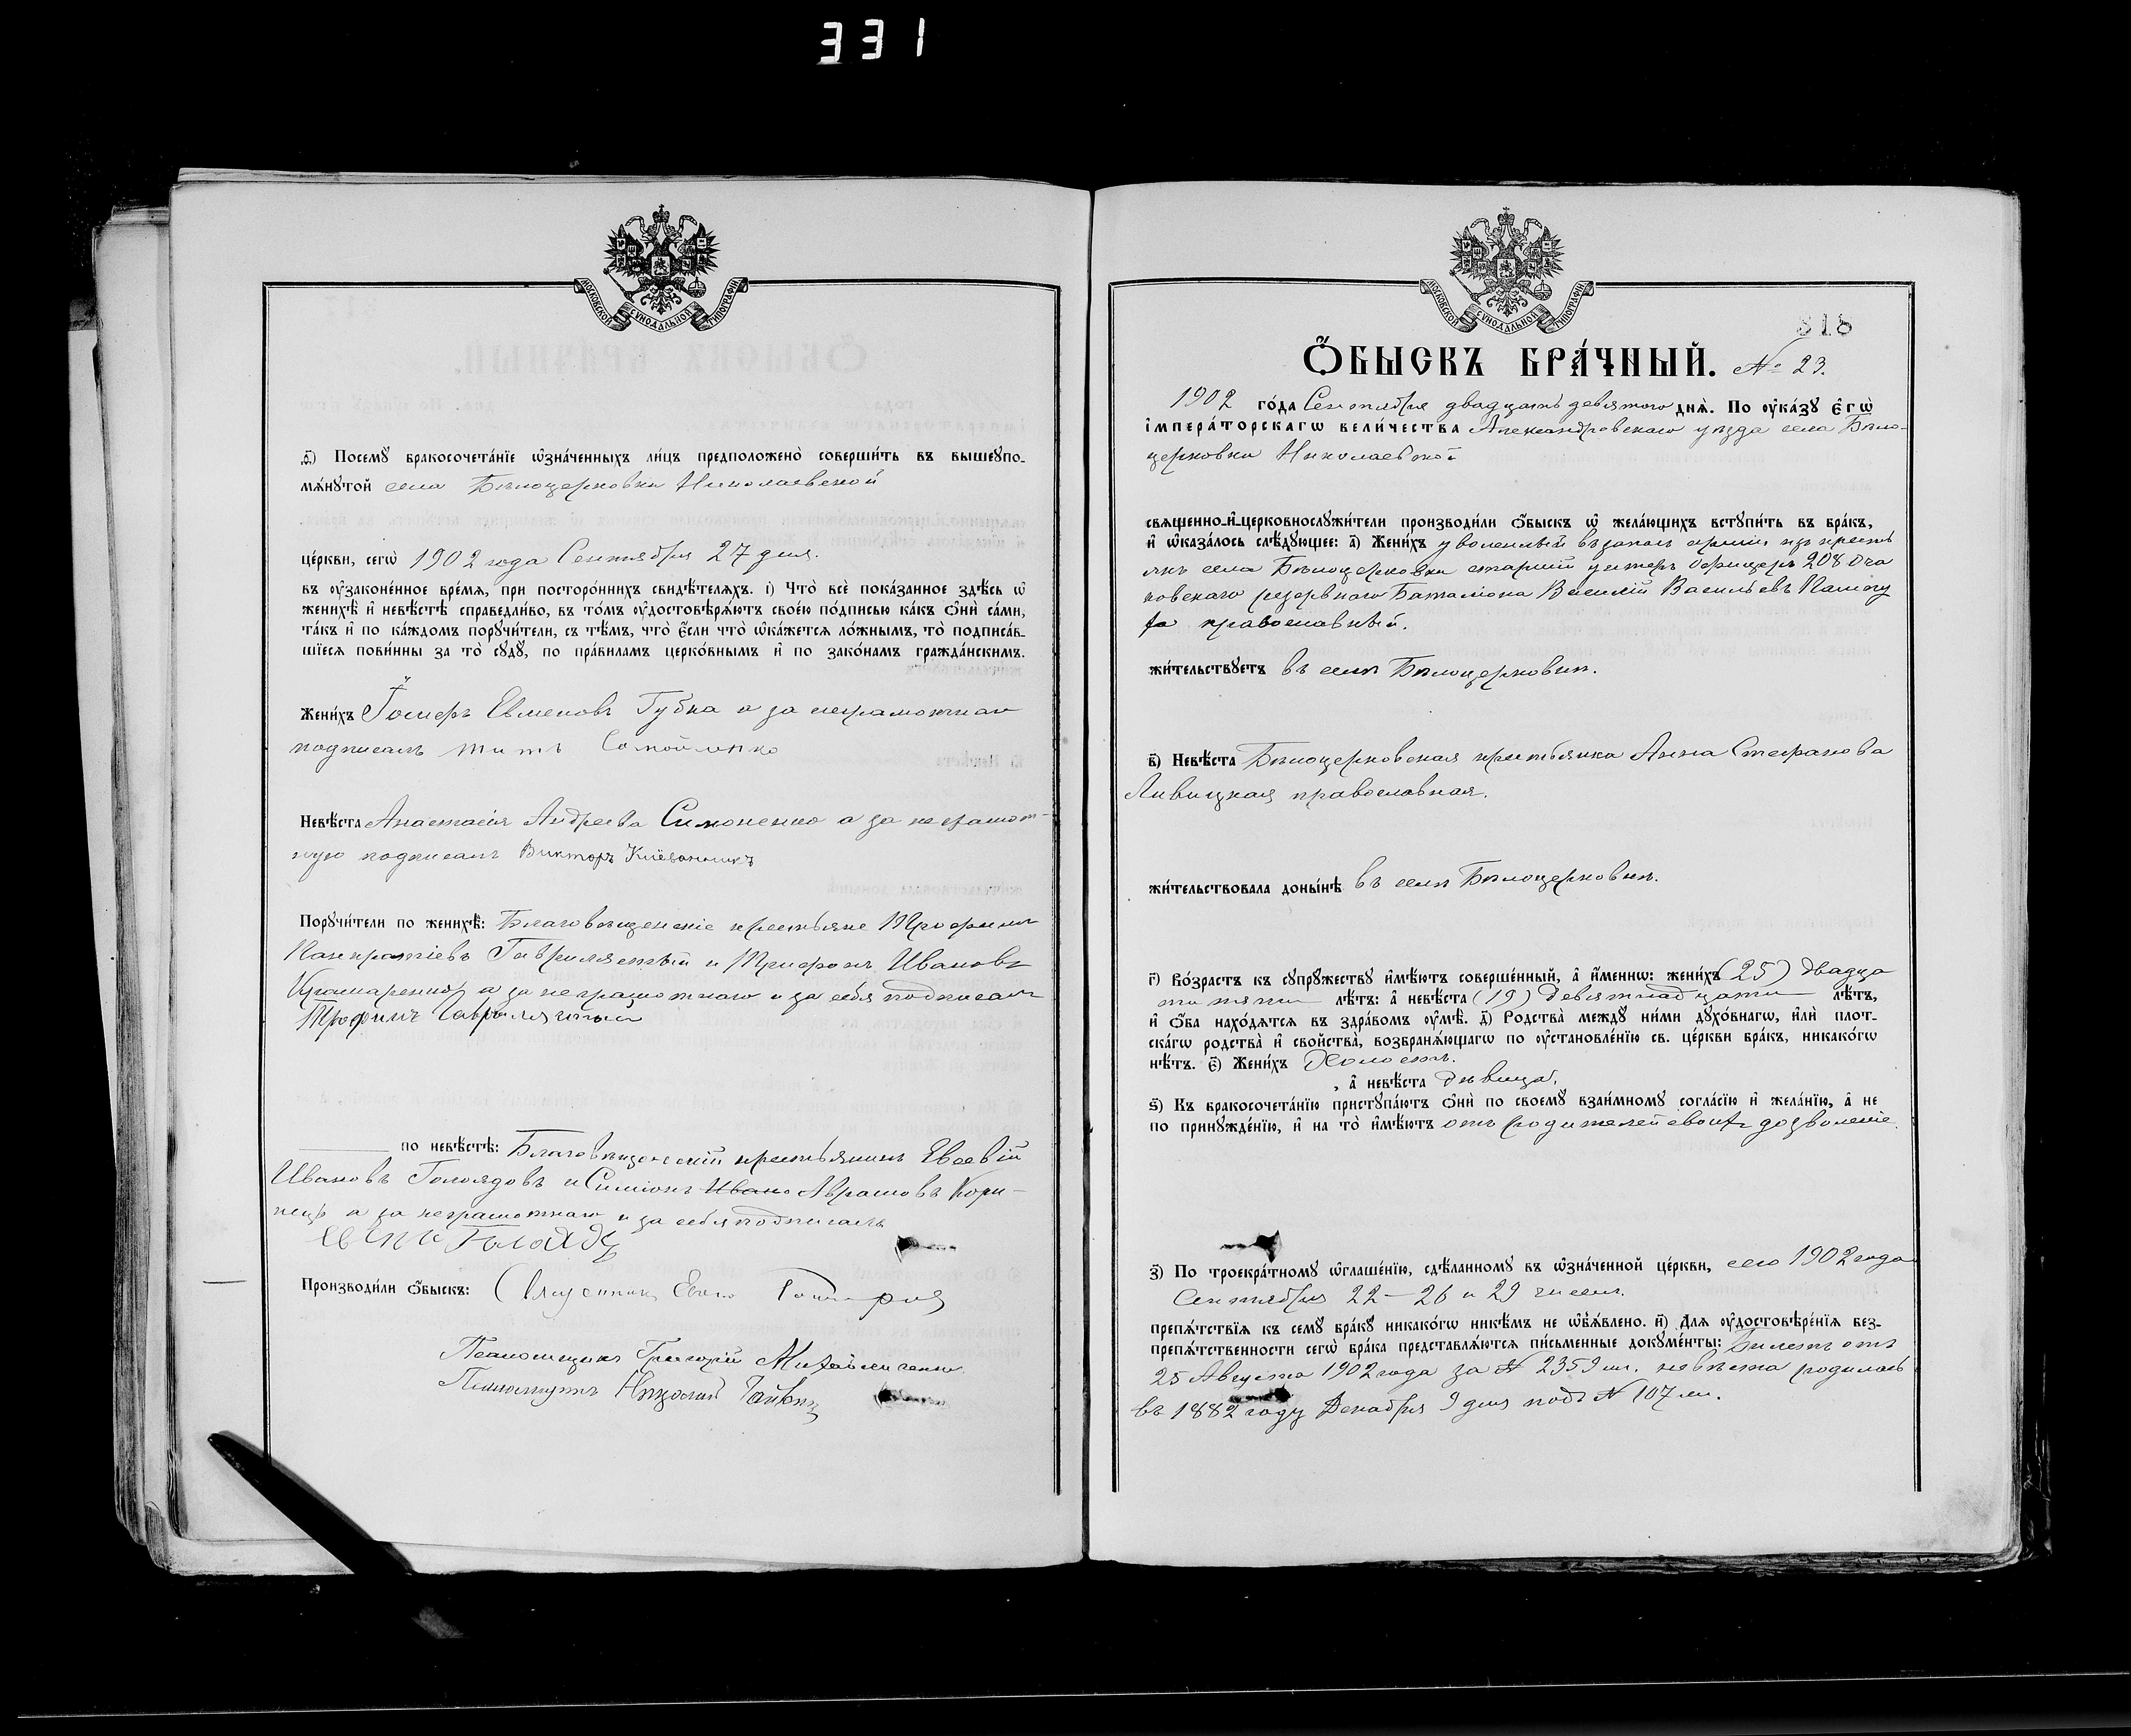 331
МОСКОВСКОЙ СѴНОДАЛЬНОЙ ТИПОГРАФІИ
ѳ҃) Посемꙋ̀ бракосочета́нїе ѡ҆зна́ченныхъ ли́цъ предположено̀ соверши́ть въ вышеꙋпо-
мѧ́нꙋтой села Бѣлоцерковки Николаевской
це́ркви, сегѡ̀ 1902 года Сентября 27 дня.
въ ᲂу҆зако́ненное вре́мѧ, при посторо́ннихъ свидѣ́телѧхъ. і) Что̀ всѐ пока́занное здѣ́сь ѡ҆
женихѣ̀ и҆ невѣ́стѣ справедли́во, въ то́мъ ᲂу҆достовѣрѧ́ютъ свое́ю по́дписью ка́къ ѻ҆нѝ са́ми,
та́къ и҆ по ка́ждомъ порꙋчи́тели, съ тѣ́мъ, что̀ є҆́сли что̀ ѡ҆ка́жетсѧ ло́жнымъ, то̀ подписа́в-
шїесѧ пови́нны за то̀ сꙋдꙋ̀, по пра́виламъ церко́внымъ и҆ по зако́намъ гражда́нскимъ.
Жени́хъ Евменовъ Губка а за неграмотнаго
подписалъ Титъ Самойленко
Невѣ́ста Анастасія Андреева Симоненко а за неграмот-
ную подписалъ Викторъ
Порꙋчи́тели по женихѣ̀: Благовѣщенскіе крестьяне Трофимъ
Панкратіевъ и Трифонъ Ивановъ
Крамаренко, а за неграмотнаго и за себя подписалъ
Трофимъ
по невѣ́стѣ: Благовѣщенскій крестьянинъ Евсевій
Ивановъ Голоядовъ и Симіонъ Аврамовъ Кори-
нецъ а за неграмотнаго и за себя подписалъ
Производи́ли ѻ҆́быскъ: Священникъ
Псаломщикъ Григорій Михайличенко
Псаломщикъ Николай
МОСКОВСКОЙ СѴНОДАЛЬНОЙ ТИПОГРАФІИ
318
Ѻ҆́БЫСКЪ БРА́ЧНЫЙ. № 23.
1902 го́да Сентября двадцать девятаго днѧ̀. По ᲂу҆ка́зꙋ є҆гѡ̀
і҆мпера́торскагѡ вели́чества Александровскаго уѣзда села Бѣло-
церковки Николаевской
свѧще́нно-и҆-церковнослꙋжи́тели производи́ли ѻ҆́быскъ ѡ҆ жела́ющихъ встꙋпи́ть въ бра́къ,
и҆ ѡ҆каза́лось слѣ́дꙋющее: а҃) Жени́хъ уволенный въ запасъ арміи изъ кресть
янъ села Бѣлоцерковки старшій унтеръ офицеръ 208 Оча
ковскаго резервнаго Баталіона Василій Васильевъ
православный.
жи́тельствꙋетъ въ селѣ Бѣлоцерковкѣ.
в҃) Невѣ́ста Бѣлоцерковская крестьянка Анна Стефанова
Ливицкая православная.
жи́тельствовала доны́нѣ въ селѣ Бѣлоцерковкѣ.
г҃) Во́зрастъ къ сꙋпрꙋ́жествꙋ и҆мѣ́ютъ соверше́нный, а҆ и҆́меннѡ: жени́хъ (25) двадца
ти пяти лѣ́тъ: а҆ невѣ́ста (19) девятнадцати лѣ́тъ,
и҆ ѻ҆́ба нахо́дѧтсѧ въ здра́вомъ ᲂу҆мѣ̀. д҃) Родства̀ междꙋ̀ ни́ми дꙋхо́внагѡ, и҆лѝ плот-
ска́гѡ родства̀ и҆ сво́йства̀, возбранѧ́ющагѡ по ᲂу҆становле́нїю св. це́ркви бра́къ, никако́гѡ
нѣ́тъ. є҃) Жени́хъ Холостъ.
, а҆ невѣ́ста дѣвица.
ѕ҃) Къ бракосочета́нїю пристꙋпа́ютъ ѻ҆нѝ по своемꙋ̀ взаи́мномꙋ согла́сїю и҆ жела́нїю, а҆ не
по принꙋжде́нїю, и҆ на то̀ и҆мѣ́ютъ отъ родителей своихъ дозволеніе.
з҃) По троекра́тномꙋ ѡ҆глаше́нїю, сдѣ́ланномꙋ въ ѡ҆зна́ченной це́ркви, сего 1902 года
Сентября 22 — 26 и 29 чиселъ.
препѧ́тствїѧ къ семꙋ̀ бра́кꙋ никако́гѡ никѣ́мъ не ѡ҆б̾ѧ́влено. и҃) Длѧ ᲂу҆достовѣре́нїѧ без-
препѧ́тственности сегѡ̀ бра́ка представлѧ́ютсѧ пи́сьменные докꙋме́нты: Билетъ отъ
25 Августа 1902 года за № 2359 мъ. невѣста родилась
въ 1882 году Декабря 9 дня подъ № 107 мъ.